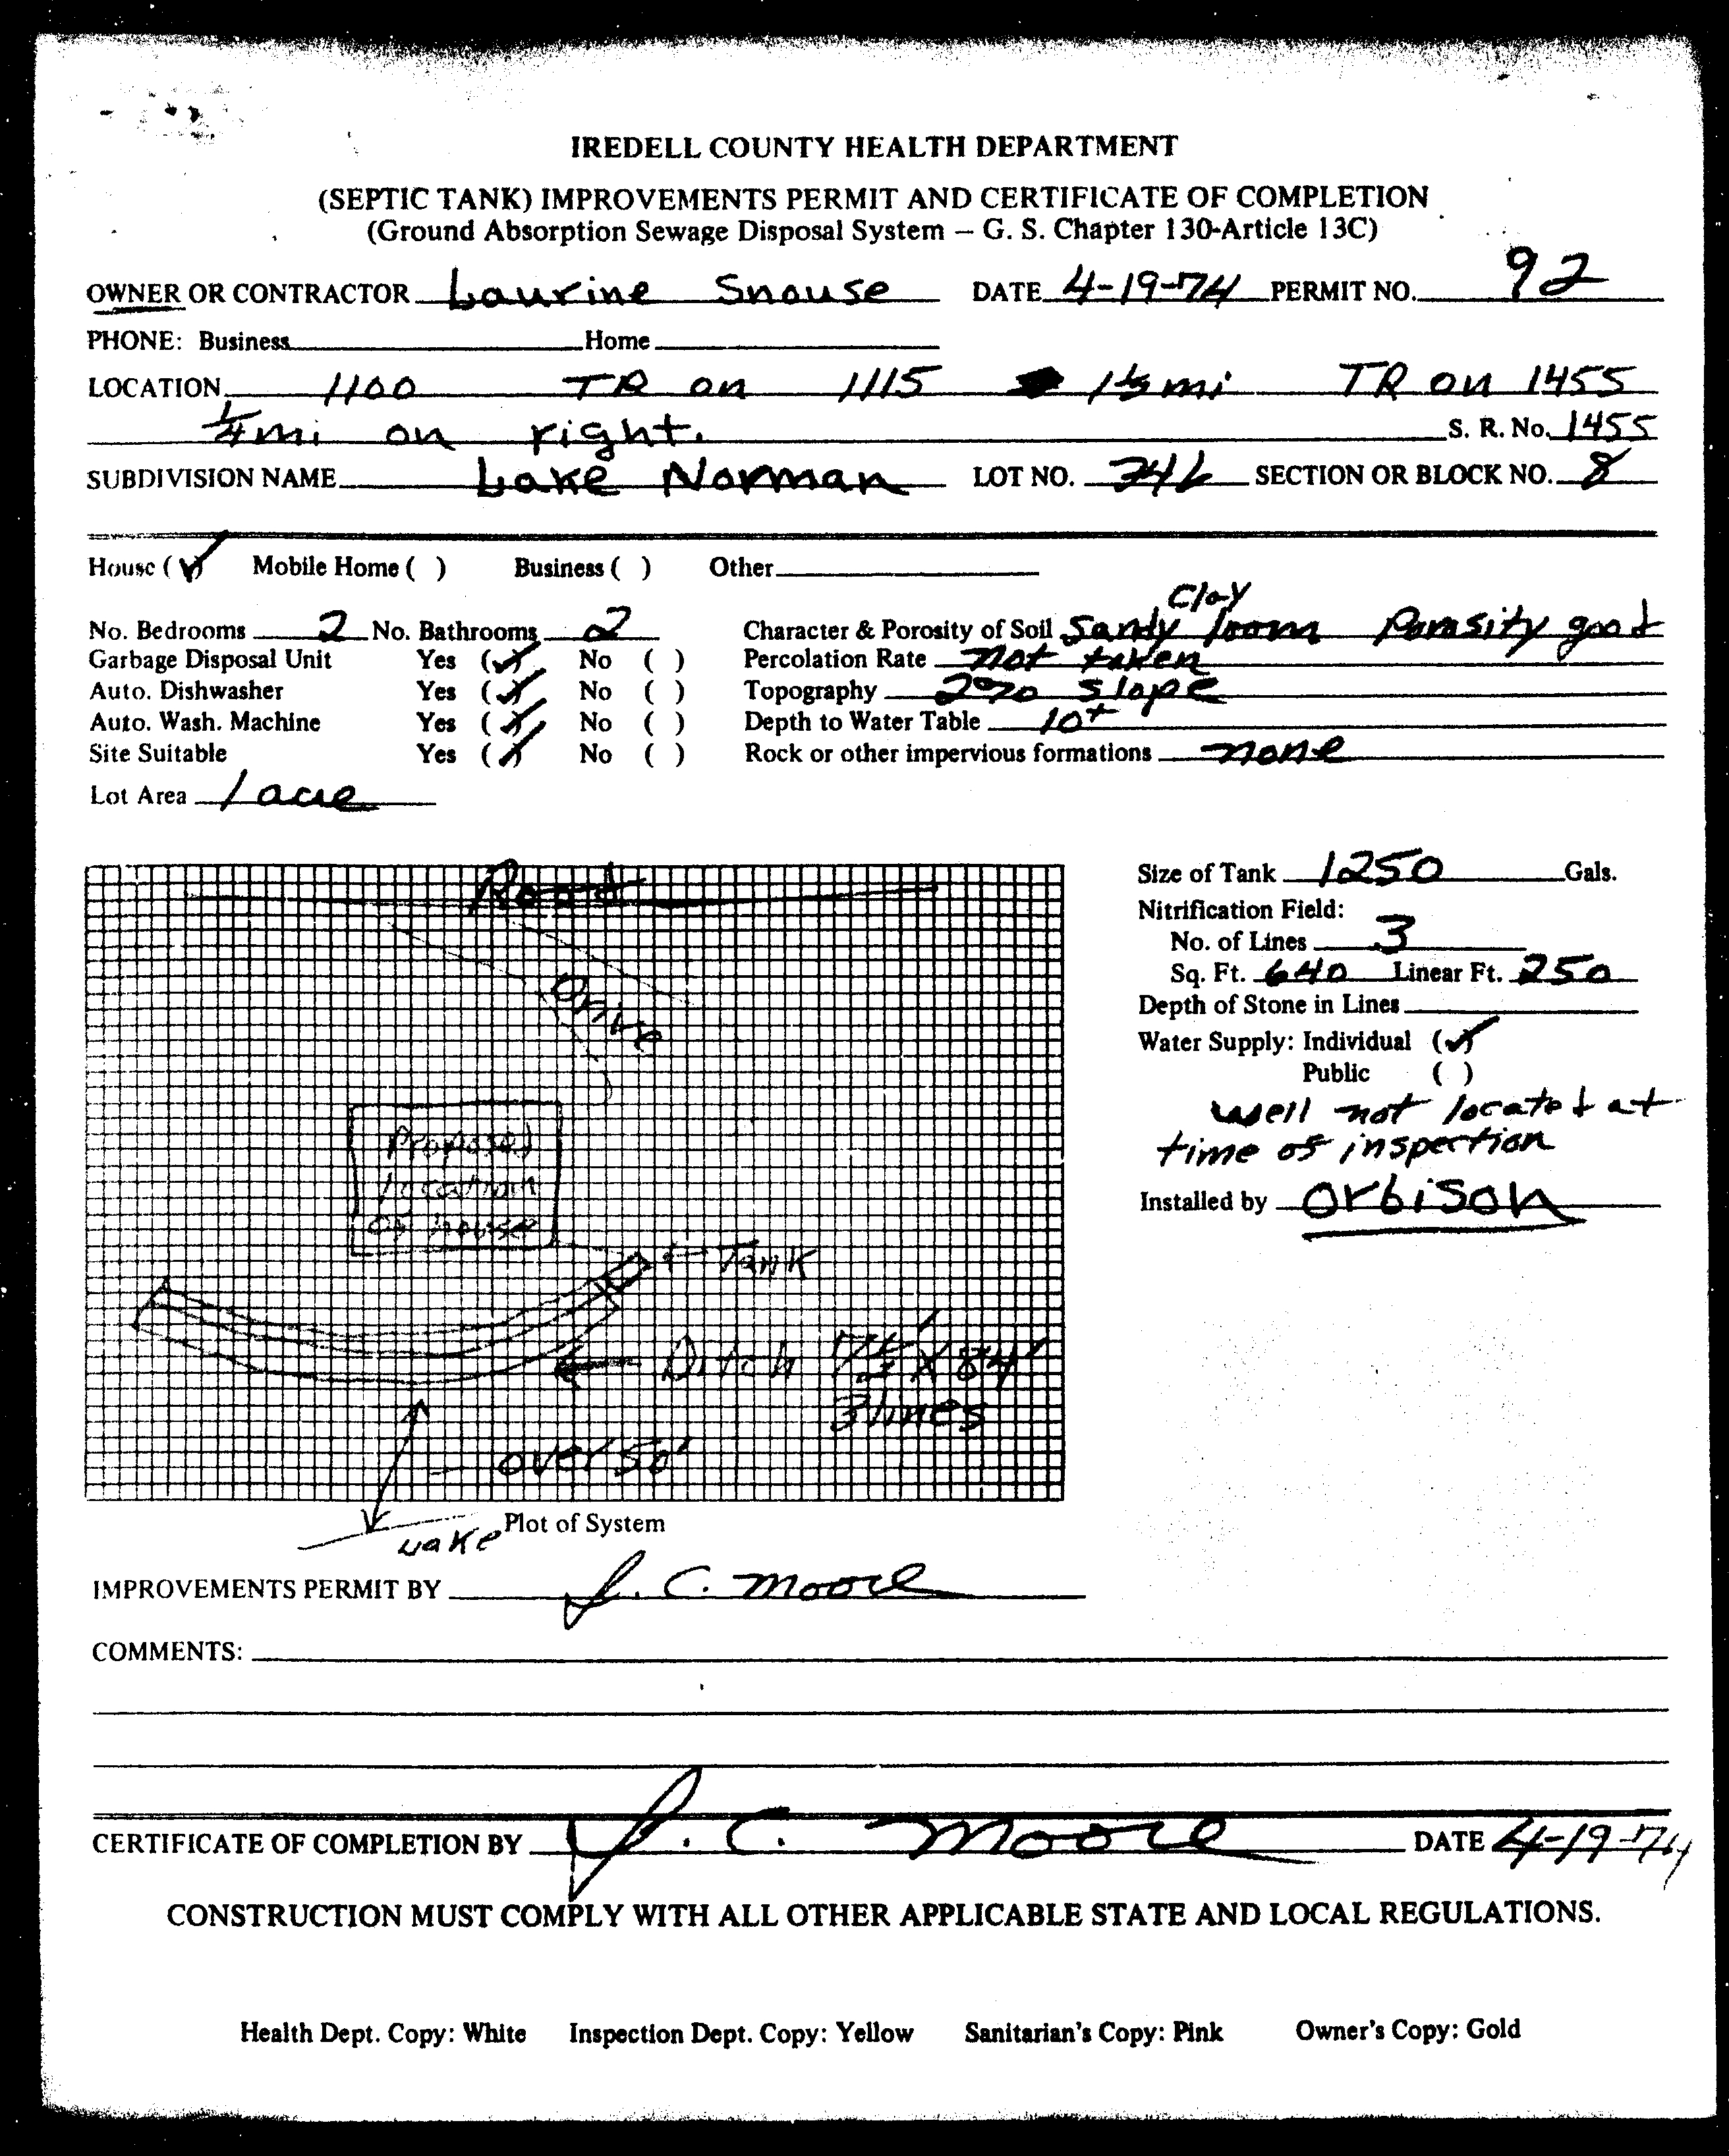 IREDELL COUNTY HEALTH DEPARTMENT
(SEPTIC TANK) IMPROVEMENTS PERMIT AND CERTIFICATE OF COMPLETION
(Ground Absorption Sewage Disposal System – G. S. Chapter 130-Article 13C)
OWNER OR CONTRACTOR Laurine Snouse DATE 4-19-74 PERMIT NO. 92
PHONE: Business Home
LOCATION 1100 TR on 1115 mi TR on 1455
1/4 mi on right. S. R. No. 1455
SUBDIVISION NAME Lake Norman LOT NO. SECTION OR BLOCK NO. 8
House (✓) Mobile Home ( ) Business ( ) Other
Clay
No. Bedrooms 2 No. Bathrooms 2 Character & Porosity of Soil Sandy loam Porosity good
Garbage Disposal Unit Yes (✓) No ( ) Percolation Rate not taken
Auto. Dishwasher Yes (✓) No ( ) Topography 2% slope
Auto. Wash. Machine Yes (✓) No ( ) Depth to Water Table 10+
Site Suitable Yes (✓) No ( ) Rock or other impervious formations none
Lot Area 1 acre
Road
Drive
Proposed
Location
of house
Tank
Ditch 7½' x 84'
3 lines
over 50'
Lake
Plot of System
Size of Tank 1250 Gals.
Nitrification Field:
No. of Lines 3
Sq. Ft. 640 Linear Ft. 250
Depth of Stone in Lines
Water Supply: Individual (✓)
Public ( )
well not located at
time of inspection
Installed by Orbison
IMPROVEMENTS PERMIT BY J. C. Moore
COMMENTS:
CERTIFICATE OF COMPLETION BY J. C. Moore DATE 4-19-74
CONSTRUCTION MUST COMPLY WITH ALL OTHER APPLICABLE STATE AND LOCAL REGULATIONS.
Health Dept. Copy: White Inspection Dept. Copy: Yellow Sanitarian's Copy: Pink Owner's Copy: Gold